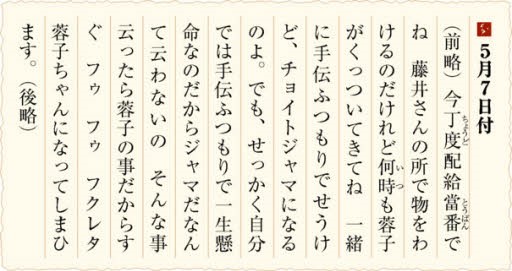 5月7日付
(前略)今丁度配給當番で
ね 藤井さんの所で物をわ
けるのだけれど何時も蓉子
がくっついてきてね 一緒
に手伝ふつもりでせうけ
ど、チョイトジャマになる
のよ。でも、せっかく自分
では手伝ふつもりで一生懸
命なのだからジャマだなん
て云わないの そんな事
云ったら蓉子の事だからす
ぐ フゥ フゥ フクレタ
蓉子ちゃんになってしまひ
ます。(後略)